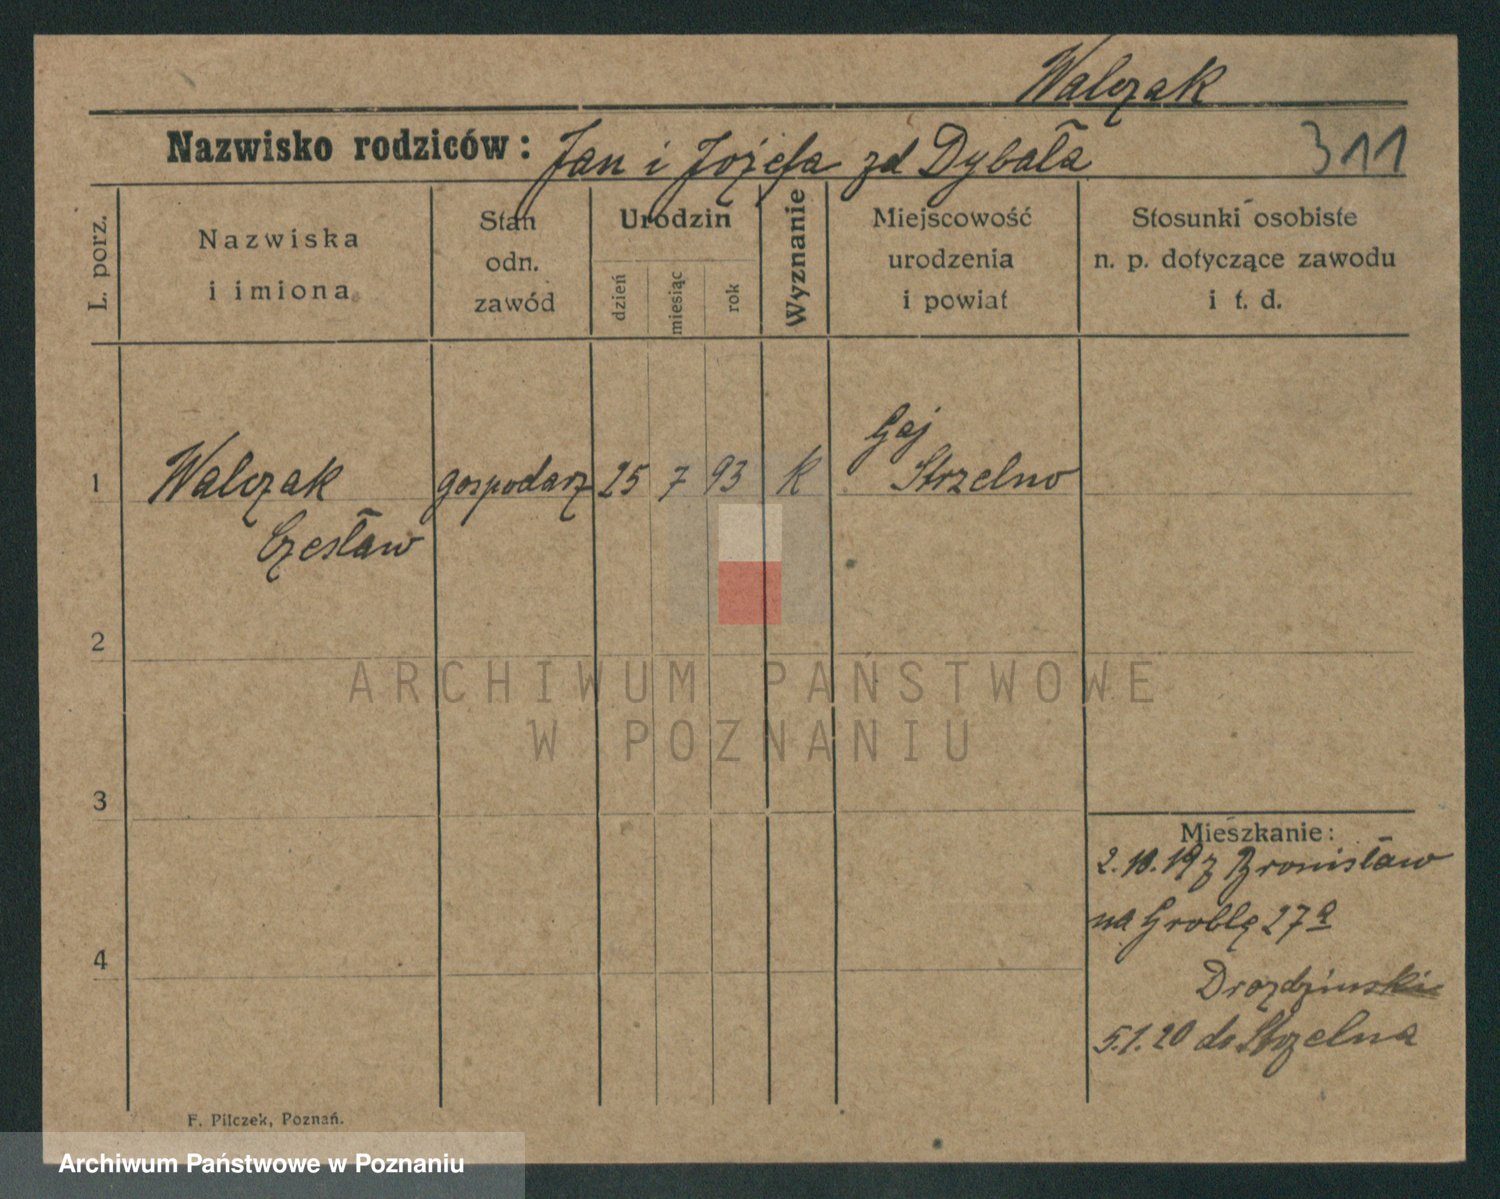 Walczak
Nazwisko rodziców: Jan i Józefa zd Dybała
311
L. porz.
Nazwiska
i imiona
Stan
odn.
zawód
Urodzin
dzień
miesiąc
rok
Wyznanie
Miejscowość
urodzenia
i powiat
Stosunki osobiste
n. p. dotyczące zawodu
i t. d.
Gaj
1 Walczak gospodarz 25 7 93 K Strzelno
Czesław
2
ARCHIWUM PAŃSTWOWE
W POZNANIU
3
Mieszkanie:
2.10.19 z Bronisław
na Groblę 27a
4
Drozdzinski
5.1.20 do Strzelna
F. Pilczek, Poznań.
Archiwum Państwowe w Poznaniu